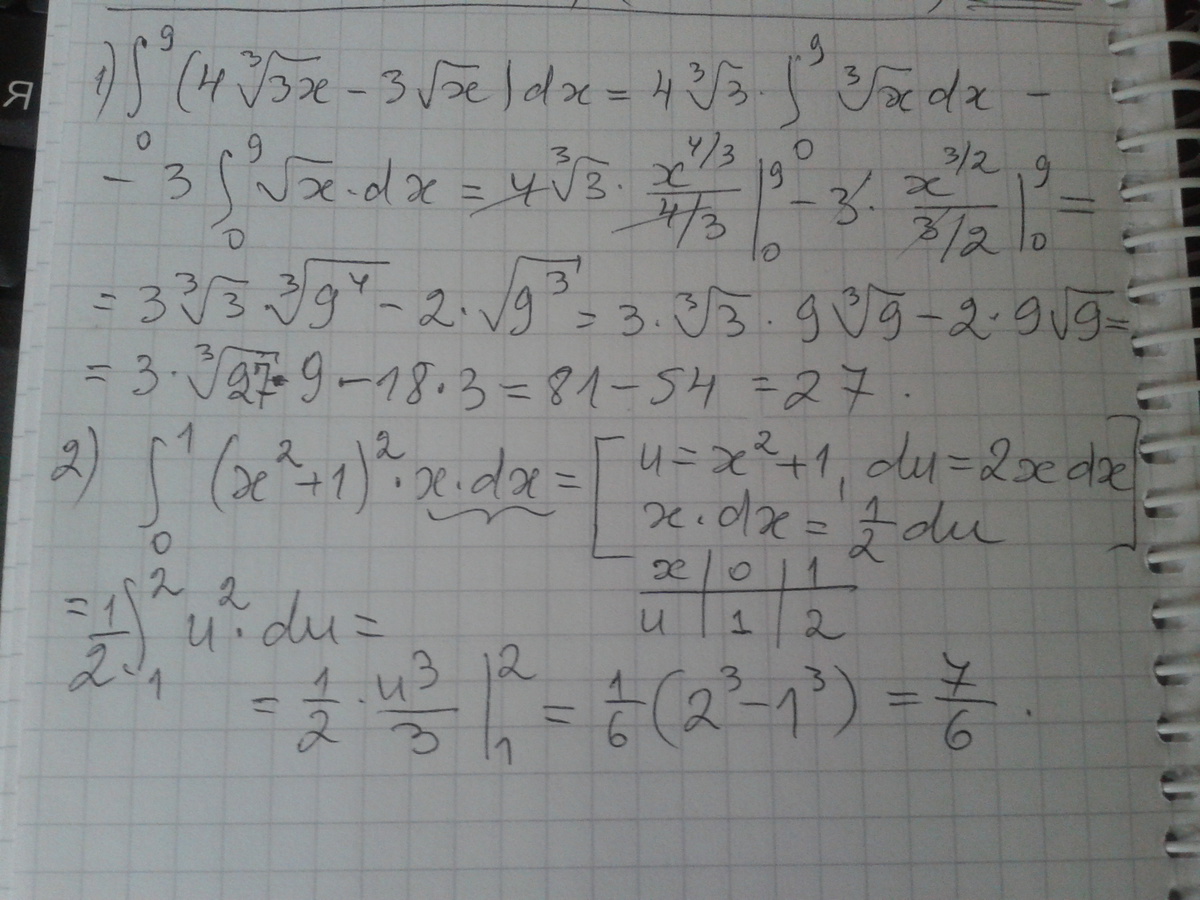 Я
1) ∫₀⁹ (4∛3x − 3√x) dx = 4∛3 · ∫₀⁹ ∛x dx −
− 3 ∫₀⁹ √x · dx = 4∛3 · x^(4/3) / (4/3) |₀⁹ − 3 · x^(3/2) / (3/2) |₀⁹ =
= 3∛3 · ∛9⁴ − 2 · √9³ = 3 · ∛3 · 9∛9 − 2 · 9√9 =
= 3 · ∛27 · 9 − 18 · 3 = 81 − 54 = 27 .
2) ∫₀¹ (x² + 1)² · x · dx = [ u = x² + 1, du = 2x dx
x · dx = 1/2 du ]
x | 0 | 1
u | 1 | 2
= 1/2 ∫₁² u² · du =
= 1/2 · u³/3 |₁² = 1/6 (2³ − 1³) = 7/6 .